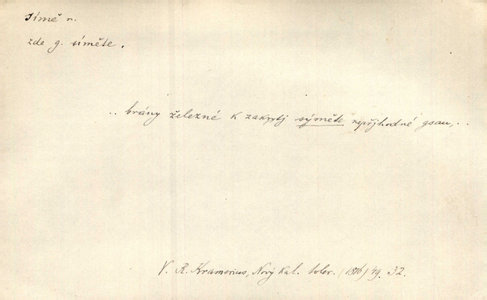 Símě n.
zde g. síměte.
.. brány železné k zakrytj syměte nepřjhodné gsau,..
V. R. Kramerius, Nový Kal. toler. (1806) 32.